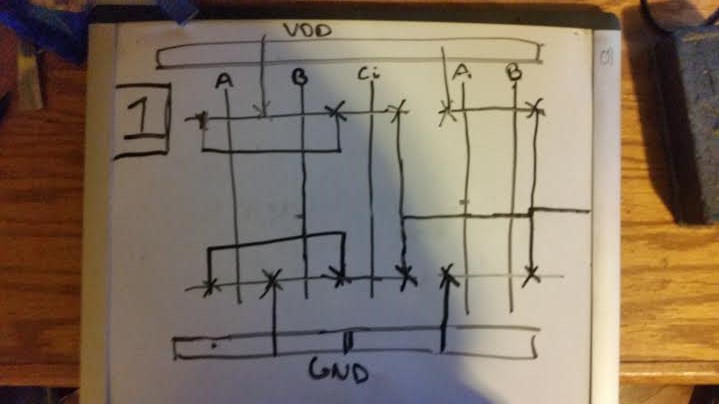 VDD
A B Ci A B
1
GND